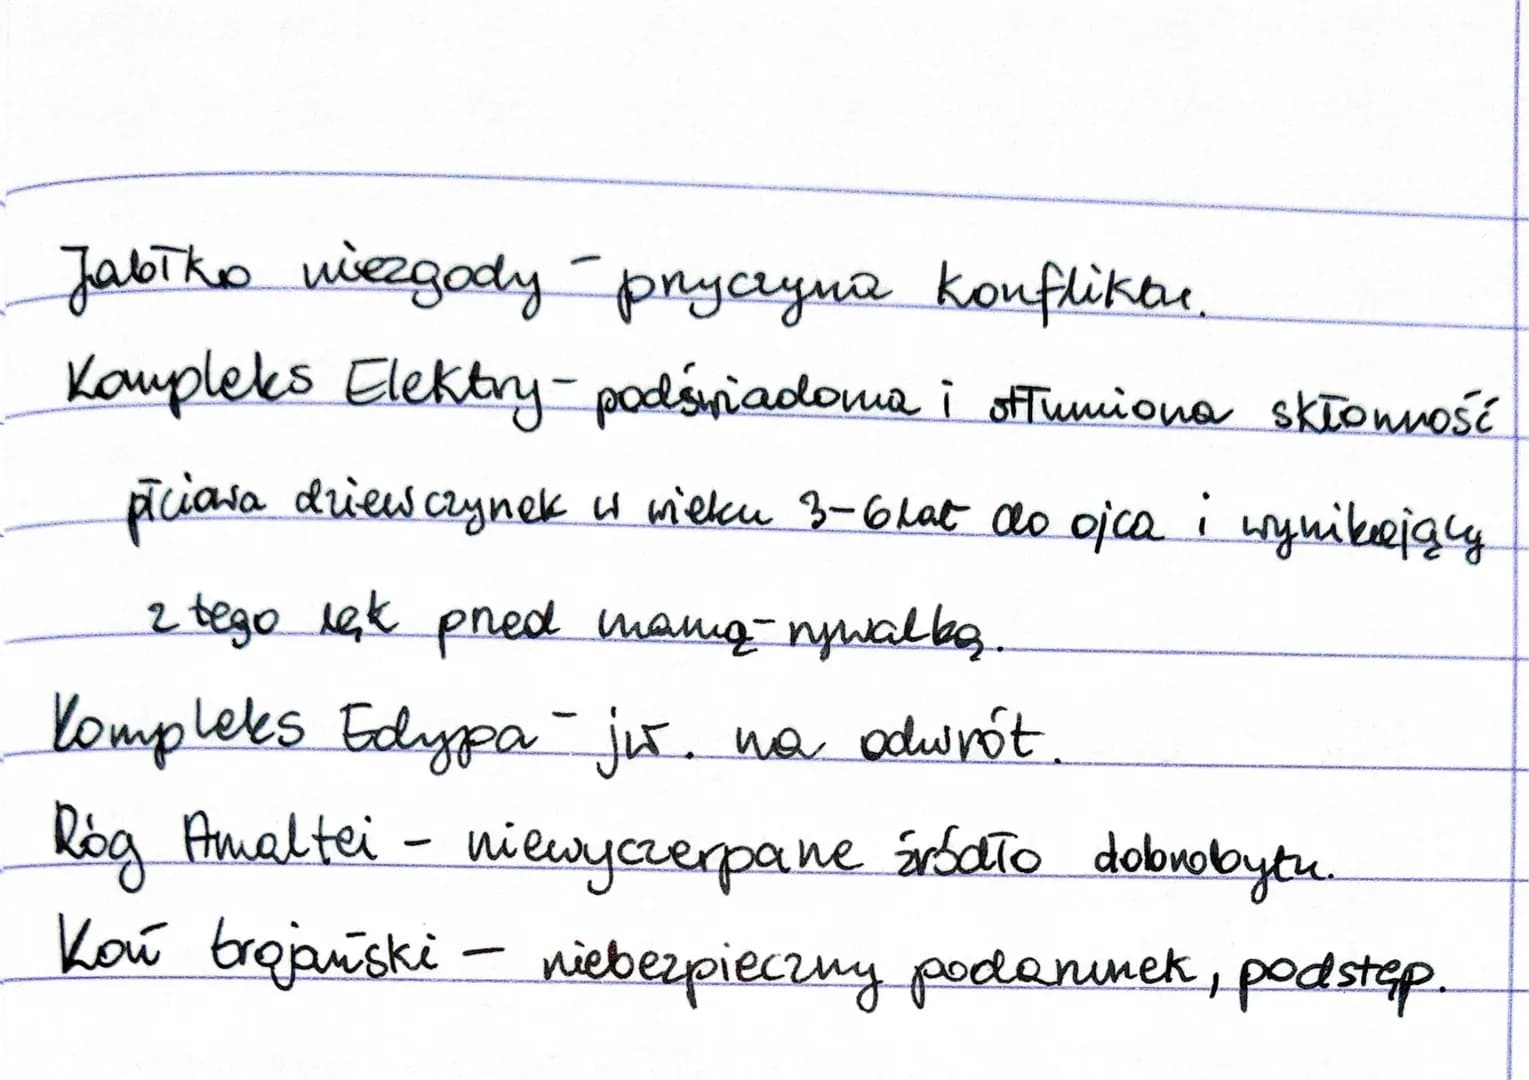 Jabłko niezgody - przyczyna konfliktu.
Kompleks Elektry - podświadoma i stłumiona skłonność
płciowa dziewczynek w wieku 3-6 lat do ojca i wynikający
z tego lęk przed mamą-rywalką.
Kompleks Edypa - jw. na odwrót.
Róg Amaltei - niewyczerpane źródło dobrobytu.
Koń trojański - niebezpieczny podarunek, podstęp.